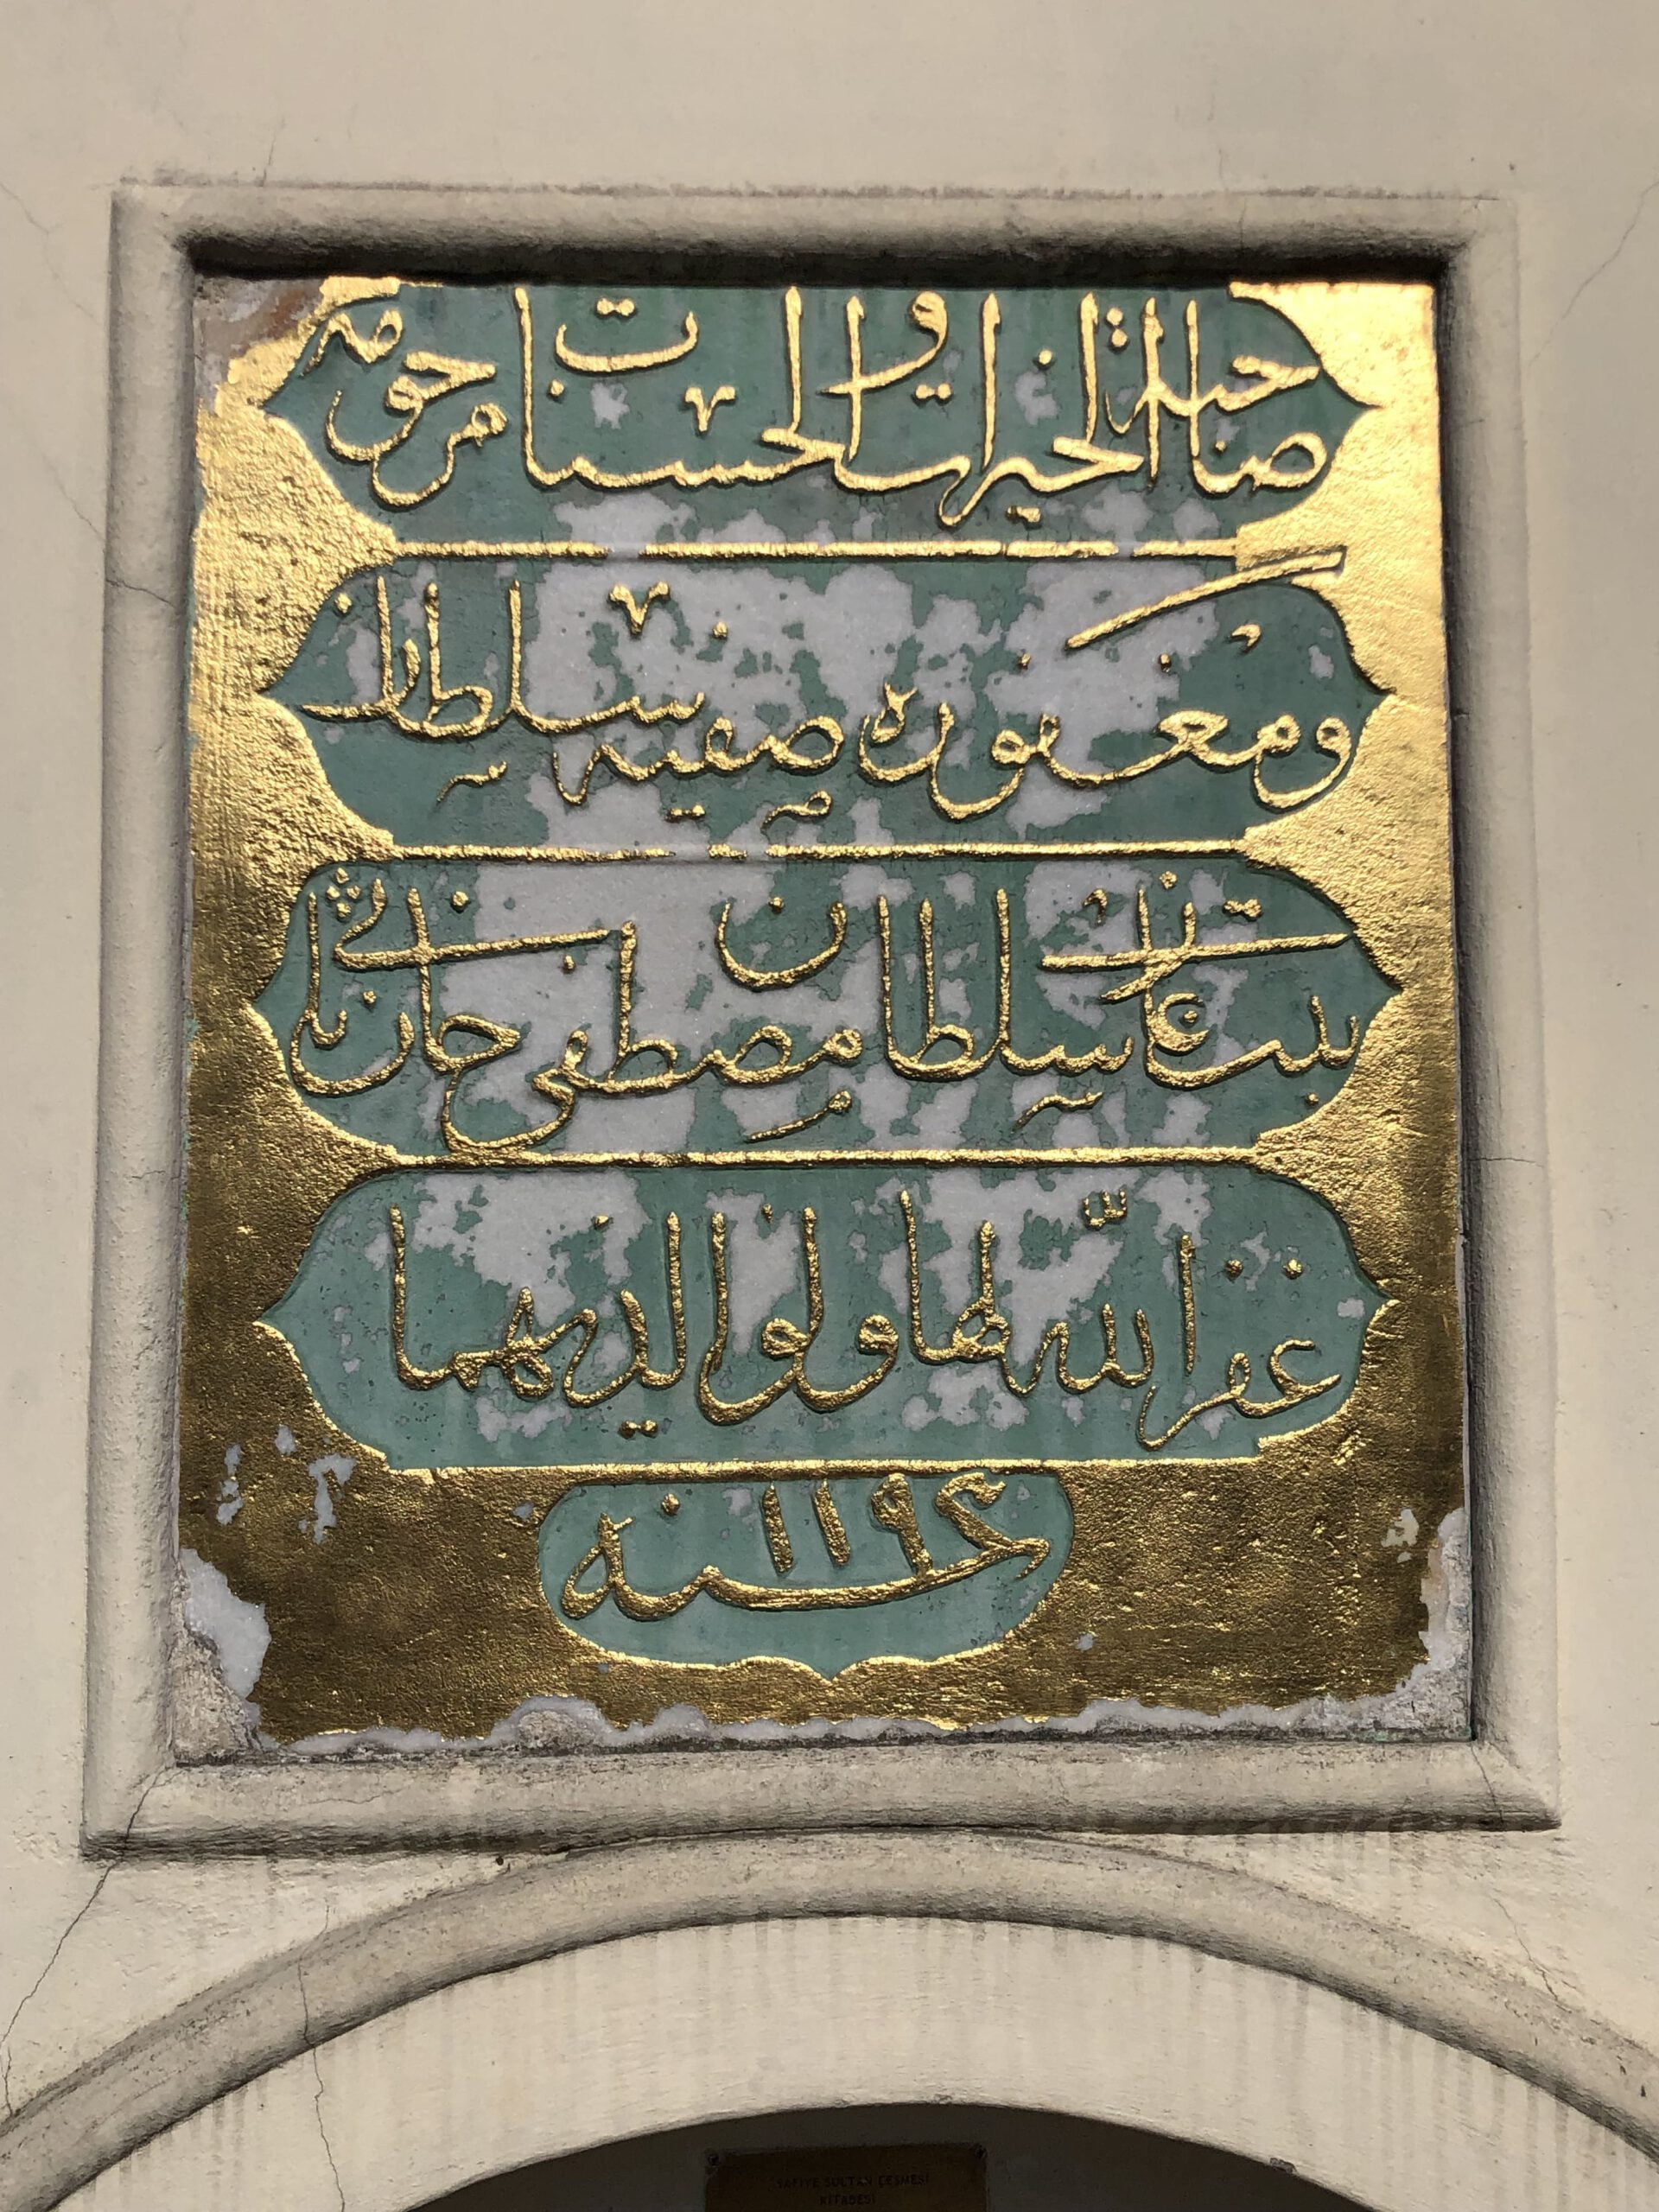 صاحبة الخيرات والحسنات مرحومه
ومغفوره صفيه سلطان
بنت غازى سلطان مصطفى خان ثانى
غفر الله لها ولوالديهما
سنه ١١٩٤
SAFİYE SULTAN ÇEŞMESİ
KİTABESİ